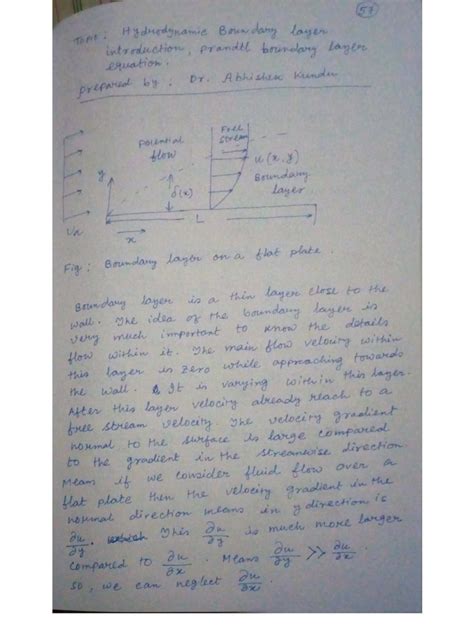 57
Topic: Hydrodynamic Boundary layer
introduction, prandtl boundary layer
equation.
prepared by: Dr. Abhishek Kundu
Free
stream
potential
flow
u(x,y)
y
δ(x)
Boundary
layer.
L
x
Fig: Boundary layer on a flat plate.
Boundary layer is a thin layer close to the
wall. The idea of the boundary layer is
very much important to know the details
flow within it. The main flow velocity within
this layer is zero while approaching towards
the wall. It is varying within this layer.
After this layer velocity already reach to a
free stream velocity. The velocity gradient
normal to the surface is large compared
to the gradient in the streamwise direction
Means if we consider fluid flow over a
flat plate then the velocity gradient in the
normal direction means in y direction is
∂u/∂y. This ∂u/∂y is much more larger
compared to ∂u/∂x. Means ∂u/∂y >> ∂u/∂x
so, we can neglect ∂u/∂x.